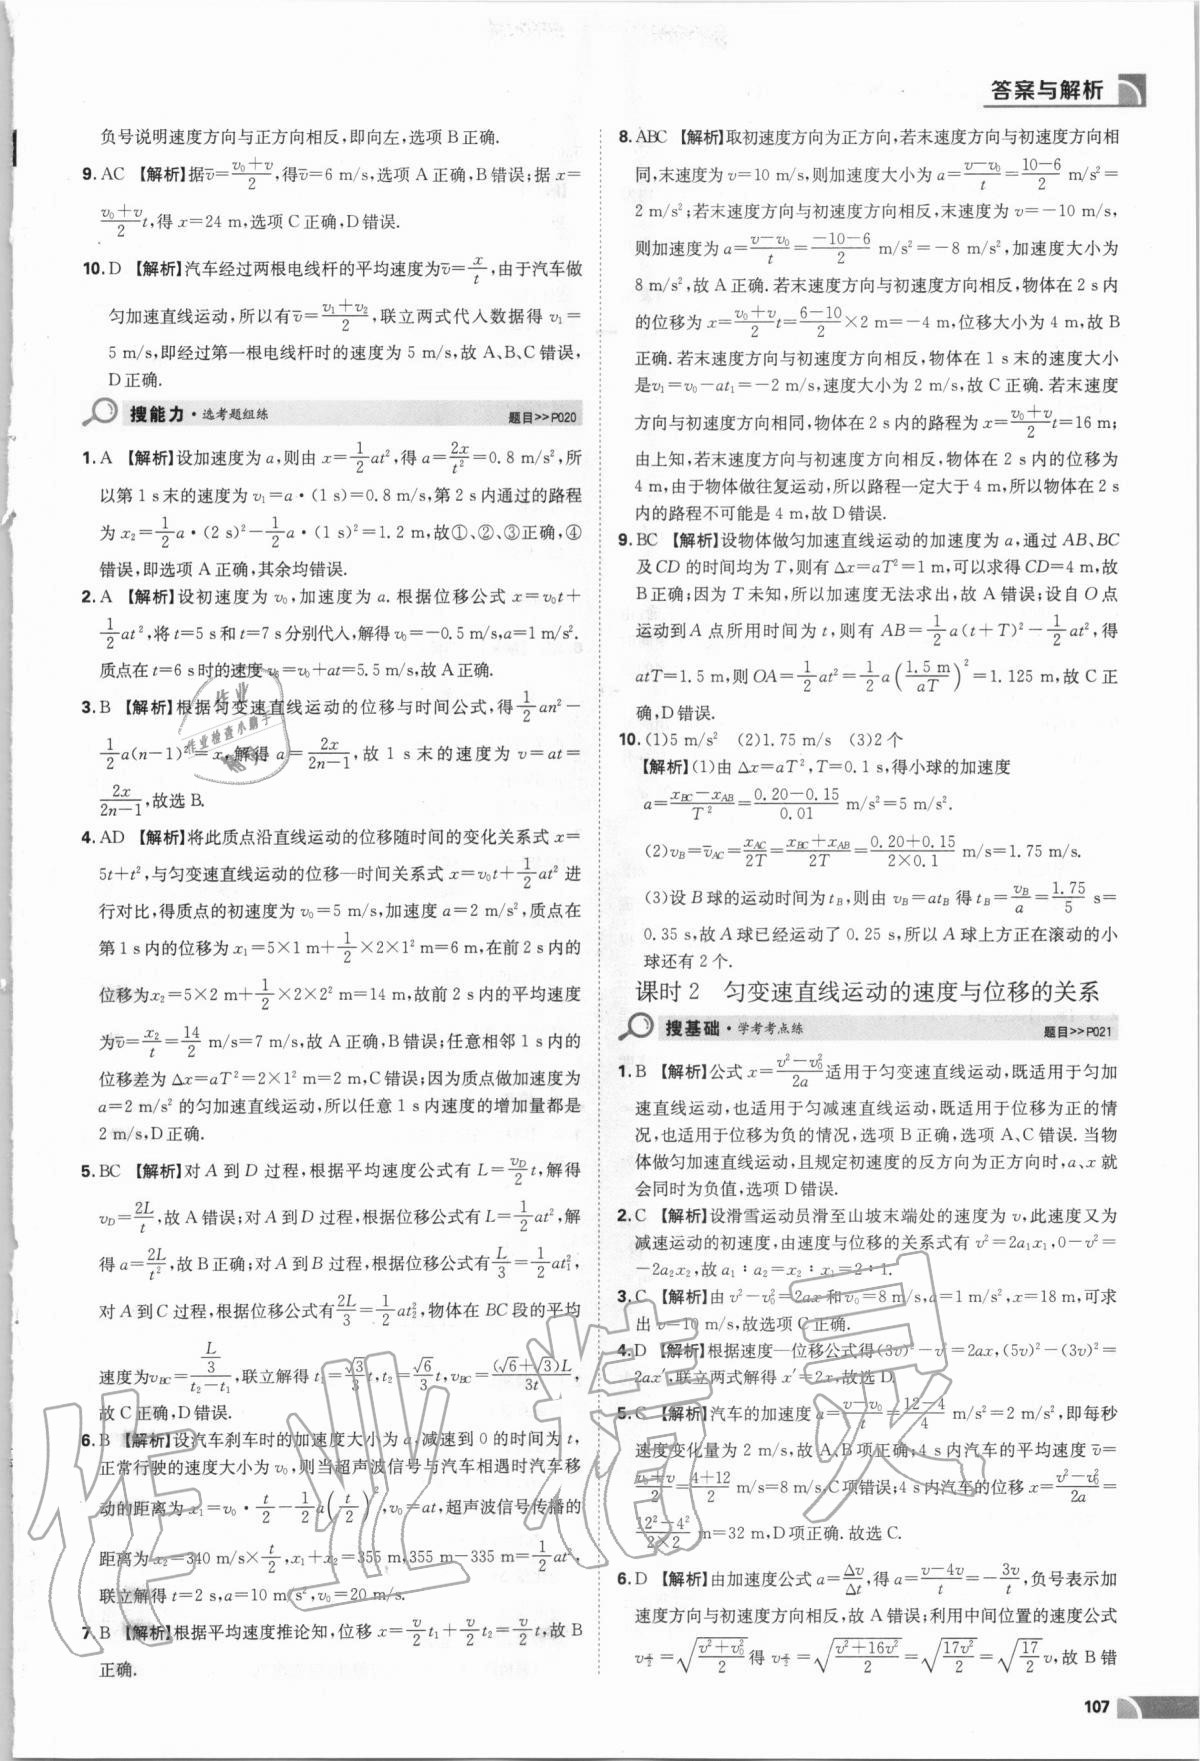 答案与解析
负号说明速度方向与正方向相反,即向左,选项 B 正确.
9. AC 【解析】据v̄=(v₀+v)/2,得v̄=6 m/s,选项 A 正确,B 错误;据 x=
(v₀+v)/2 t,得 x=24 m,选项 C 正确,D 错误.
10. D 【解析】汽车经过两根电线杆的平均速度为v̄=x/t,由于汽车做
匀加速直线运动,所以有v̄=(v₁+v₂)/2,联立两式代入数据得 v₁=
5 m/s,即经过第一根电线杆时的速度为 5 m/s,故 A、B、C 错误,
D 正确.
搜能力·选考题组练 题目>>P020
1. A 【解析】设加速度为 a,则由 x=1/2 at²,得 a=2x/t²=0.8 m/s²,所
以第 1 s 末的速度为 v₁=a·(1 s)=0.8 m/s,第 2 s 内通过的路程
为 x₂=1/2 a·(2 s)²-1/2 a·(1 s)²=1.2 m,故①、②、③正确,④
错误,即选项 A 正确,其余均错误.
2. A 【解析】设初速度为 v₀,加速度为 a. 根据位移公式 x=v₀t+
1/2 at²,将 t=5 s 和 t=7 s 分别代入,解得 v₀=-0.5 m/s,a=1 m/s².
质点在 t=6 s 时的速度 v₆=v₀+at=5.5 m/s,故 A 正确.
3. B 【解析】根据匀变速直线运动的位移与时间公式,得 1/2 an²-
1/2 a(n-1)²=x,解得 a=2x/(2n-1),故 1 s 末的速度为 v=at=
2x/(2n-1),故选 B.
4. AD 【解析】将此质点沿直线运动的位移随时间的变化关系式 x=
5t+t²,与匀变速直线运动的位移—时间关系式 x=v₀t+1/2 at² 进
行对比,得质点的初速度为 v₀=5 m/s,加速度 a=2 m/s²,质点在
第 1 s 内的位移为 x₁=5×1 m+1/2×2×1² m=6 m,在前 2 s 内的
位移为x₂=5×2 m+1/2×2×2² m=14 m,故前 2 s 内的平均速度
为v̄=x₂/t=14/2 m/s=7 m/s,故 A 正确,B 错误;任意相邻 1 s 内的
位移差为 Δx=aT²=2×1² m=2 m,C 错误;因为质点做加速度为
a=2 m/s² 的匀加速直线运动,所以任意 1 s 内速度的增加量都是
2 m/s,D 正确.
5. BC 【解析】对 A 到 D 过程,根据平均速度公式有 L=v_D/2 t,解得
v_D=2L/t,故 A 错误;对 A 到 D 过程,根据位移公式有 L=1/2 at²,解
得 a=2L/t²,故 B 正确;对 A 到 B 过程,根据位移公式有 L/3=1/2 at₁²,
对 A 到 C 过程,根据位移公式有 2L/3=1/2 at₂²,物体在 BC 段的平均
速度为v_BC=(L/3)/(t₂-t₁),联立解得 t₁=√3/3 t,t₂=√6/3 t,v_BC=(√6+√3)L/3t,
故 C 正确,D 错误.
6. B 【解析】设汽车刹车时的加速度大小为 a,减速到 0 的时间为 t,
正常行驶的速度大小为 v₀,则当超声波信号与汽车相遇时汽车移
动的距离为 x₁=v₀·t/2-1/2 a(t/2)²,v₀=at,超声波信号传播的
距离为 x₂=340 m/s×t/2,x₁+x₂=355 m,355 m-335 m=1/2 at²,
联立解得 t=2 s,a=10 m/s²,v₀=20 m/s.
7. B 【解析】根据平均速度推论知,位移 x=v/2 t₁+v/2 t₂=v/2 t,故 B
正确.
8. ABC 【解析】取初速度方向为正方向,若末速度方向与初速度方向相
同,末速度为 v=10 m/s,则加速度大小为 a=(v-v₀)/t=(10-6)/2 m/s²=
2 m/s²;若末速度方向与初速度方向相反,末速度为 v=-10 m/s,
则加速度为 a=(v-v₀)/t=(-10-6)/2 m/s²=-8 m/s²,加速度大小为
8 m/s²,故 A 正确. 若末速度方向与初速度方向相反,物体在 2 s 内
的位移为 x=(v₀+v)/2 t=(6-10)/2×2 m=-4 m,位移大小为 4 m,故 B
正确. 若末速度方向与初速度方向相反,物体在 1 s 末的速度大小
是v₁=v₀-at₁=-2 m/s,速度大小可能为 2 m/s,故 C 正确. 若末速度
方向与初速度方向相同,物体在 2 s 内的路程为 x=(v₀+v)/2 t=16 m;
由上知,若末速度方向与初速度方向相反,物体在 2 s 内的位移为
4 m,由于物体做往复运动,所以路程一定大于 4 m,所以物体在 2 s
内的路程不可能是 4 m,故 D 错误.
9. BC 【解析】设物体做匀加速直线运动的加速度为 a,通过 AB、BC
及 CD 的时间均为 T,则有 Δx=aT²=1 m,可以求得 CD=4 m,故
B 正确;因为 T 未知,所以加速度无法求出,故 A 错误;设自 O 点
运动到 A 点所用时间为 t,则有 AB=1/2 a(t+T)²-1/2 at²,得
atT=1.5 m,则 OA=1/2 at²=1/2 a(1.5 m/aT)²=1.125 m,故 C 正
确,D 错误.
10. (1)5 m/s² (2)1.75 m/s (3)2 个
【解析】(1)由 Δx=aT²,T=0.1 s,得小球的加速度
a=(x_BC-x_AB)/T²=(0.20-0.15)/0.01 m/s²=5 m/s².
(2)v_B=v̄_AC=x_AC/2T=(x_BC+x_AB)/2T=(0.20+0.15)/(2×0.1) m/s=1.75 m/s.
(3)设 B 球的运动时间为 t_B,则由 v_B=at_B 得 t_B=v_B/a=1.75/5 s=
0.35 s,故 A 球已经运动了 0.25 s,所以 A 球上方正在滚动的小
球还有 2 个.
课时 2 匀变速直线运动的速度与位移的关系
搜基础·学考考点练 题目>>P021
1. B 【解析】公式 x=(v²-v₀²)/2a 适用于匀变速直线运动,既适用于匀加
速直线运动,也适用于匀减速直线运动,既适用于位移为正的情
况,也适用于位移为负的情况,选项 B 正确,选项 A、C 错误. 当物
体做匀加速直线运动,且规定初速度的反方向为正方向时,a、x 就
会同时为负值,选项 D 错误.
2. C 【解析】设滑雪运动员滑至山坡末端处的速度为 v,此速度又为
减速运动的初速度,由速度与位移的关系式有 v²=2a₁x₁,0-v²=
-2a₂x₂,故 a₁∶a₂=x₂∶x₁=2∶1.
3. C 【解析】由 v²-v₀²=2ax 和 v₀=8 m/s,a=1 m/s²,x=18 m,可求
出 v=10 m/s,故选项 C 正确.
4. D 【解析】根据速度—位移公式得(3v)²-v²=2ax,(5v)²-(3v)²=
2ax′,联立两式解得 x′=2x,故选 D.
5. C 【解析】汽车的加速度 a=(v-v₀)/t=(12-4)/4 m/s²=2 m/s²,即每秒
速度变化量为 2 m/s,故 A、B 项正确;4 s 内汽车的平均速度 v̄=
(v₀+v)/2=(4+12)/2 m/s=8 m/s,C 项错误;4 s 内汽车的位移 x=(v²-v₀²)/2a=
(12²-4²)/(2×2) m=32 m,D 项正确. 故选 C.
6. D 【解析】由加速度公式 a=Δv/Δt,得 a=(v-4v)/t=-3v/t,负号表示加
速度方向与初速度方向相反,故 A 错误;利用中间位置的速度公式
v_(x/2)=√((v²+v₀²)/2) 得 v_(x/2)=√((v²+16v²)/2)=√(17v²/2)=√(17/2) v,故 B 错
107
作业
作业检查小助手
作业精灵